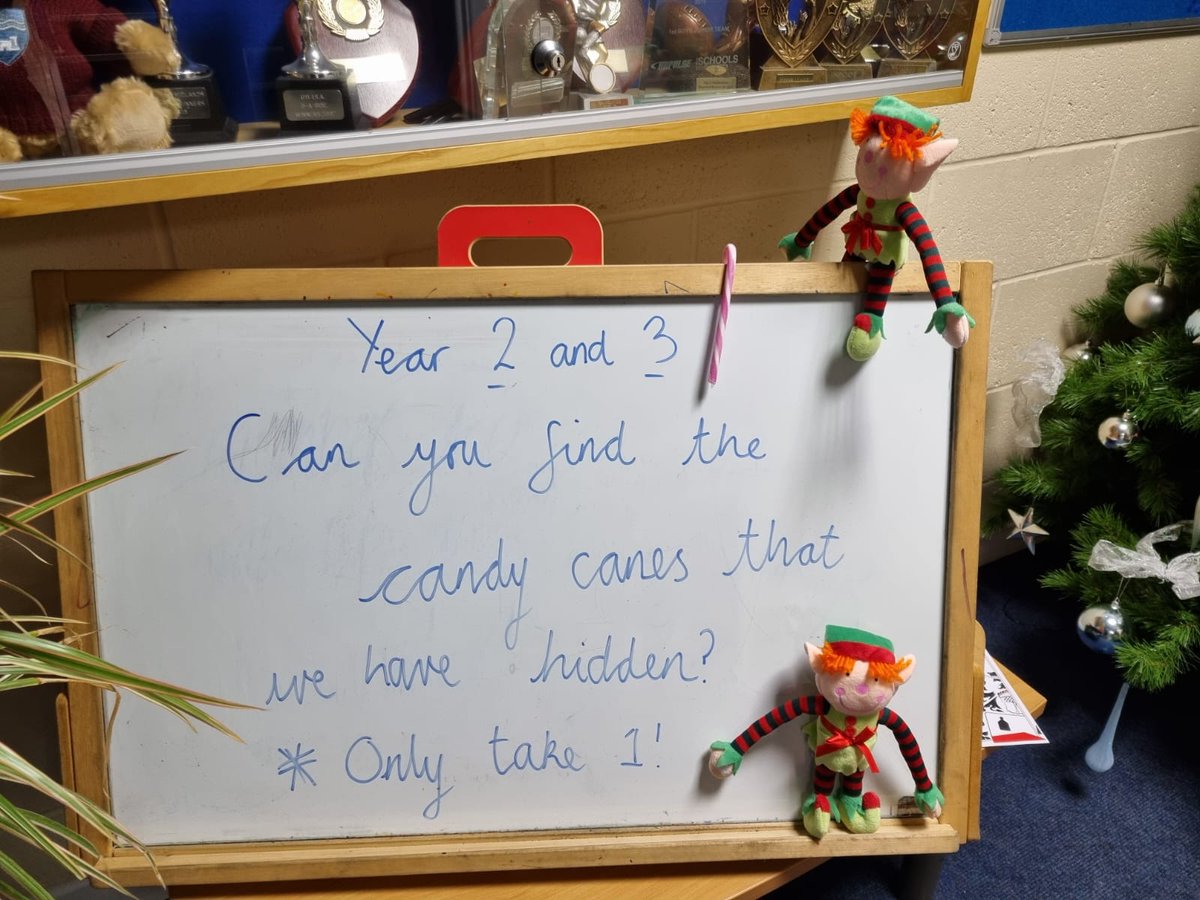 SCHOOLS
Year 2 and 3
Can you find the
candy canes that
we have hidden?
* Only take 1!